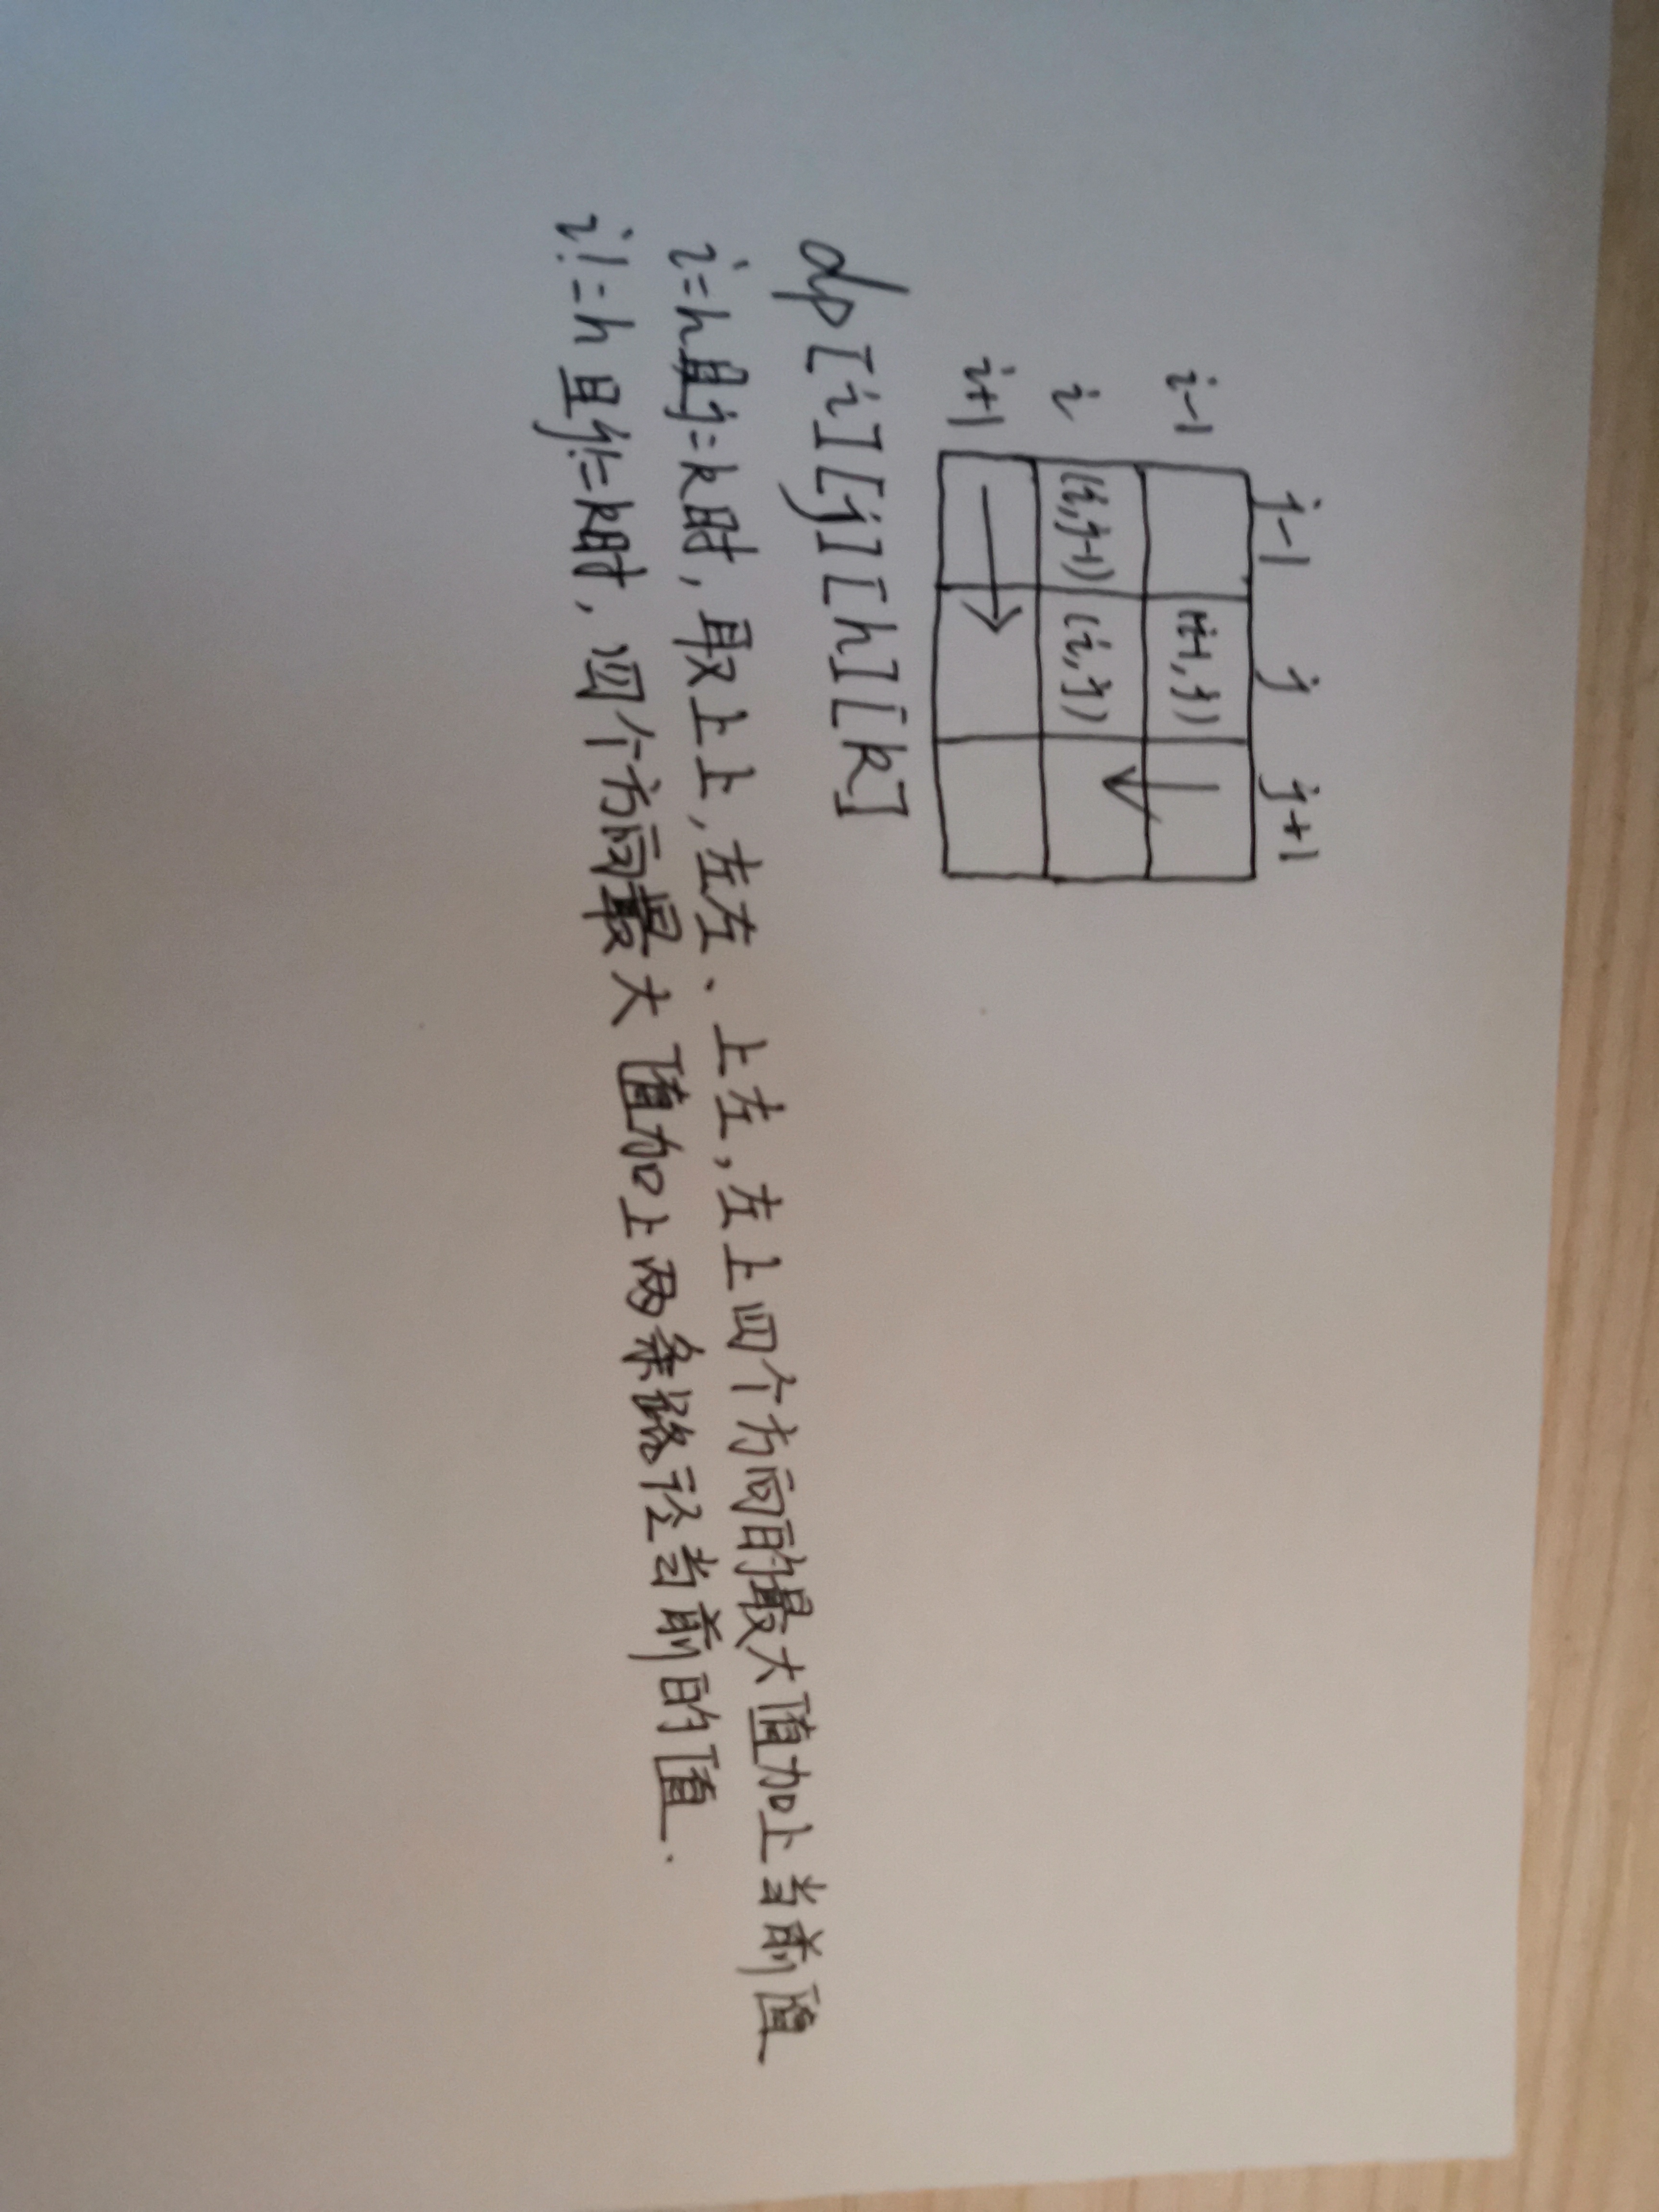 j-1 j j+1
i-1 (i-1,j)
i (i,j-1) (i,j)
i+1
dp[i][j][h][k]
i=h且j=k时,取上上,左左、上左,左上四个方向的最大值加上当前值
i!=h且j!=k时,四个方向最大值加上两条路径当前的值.